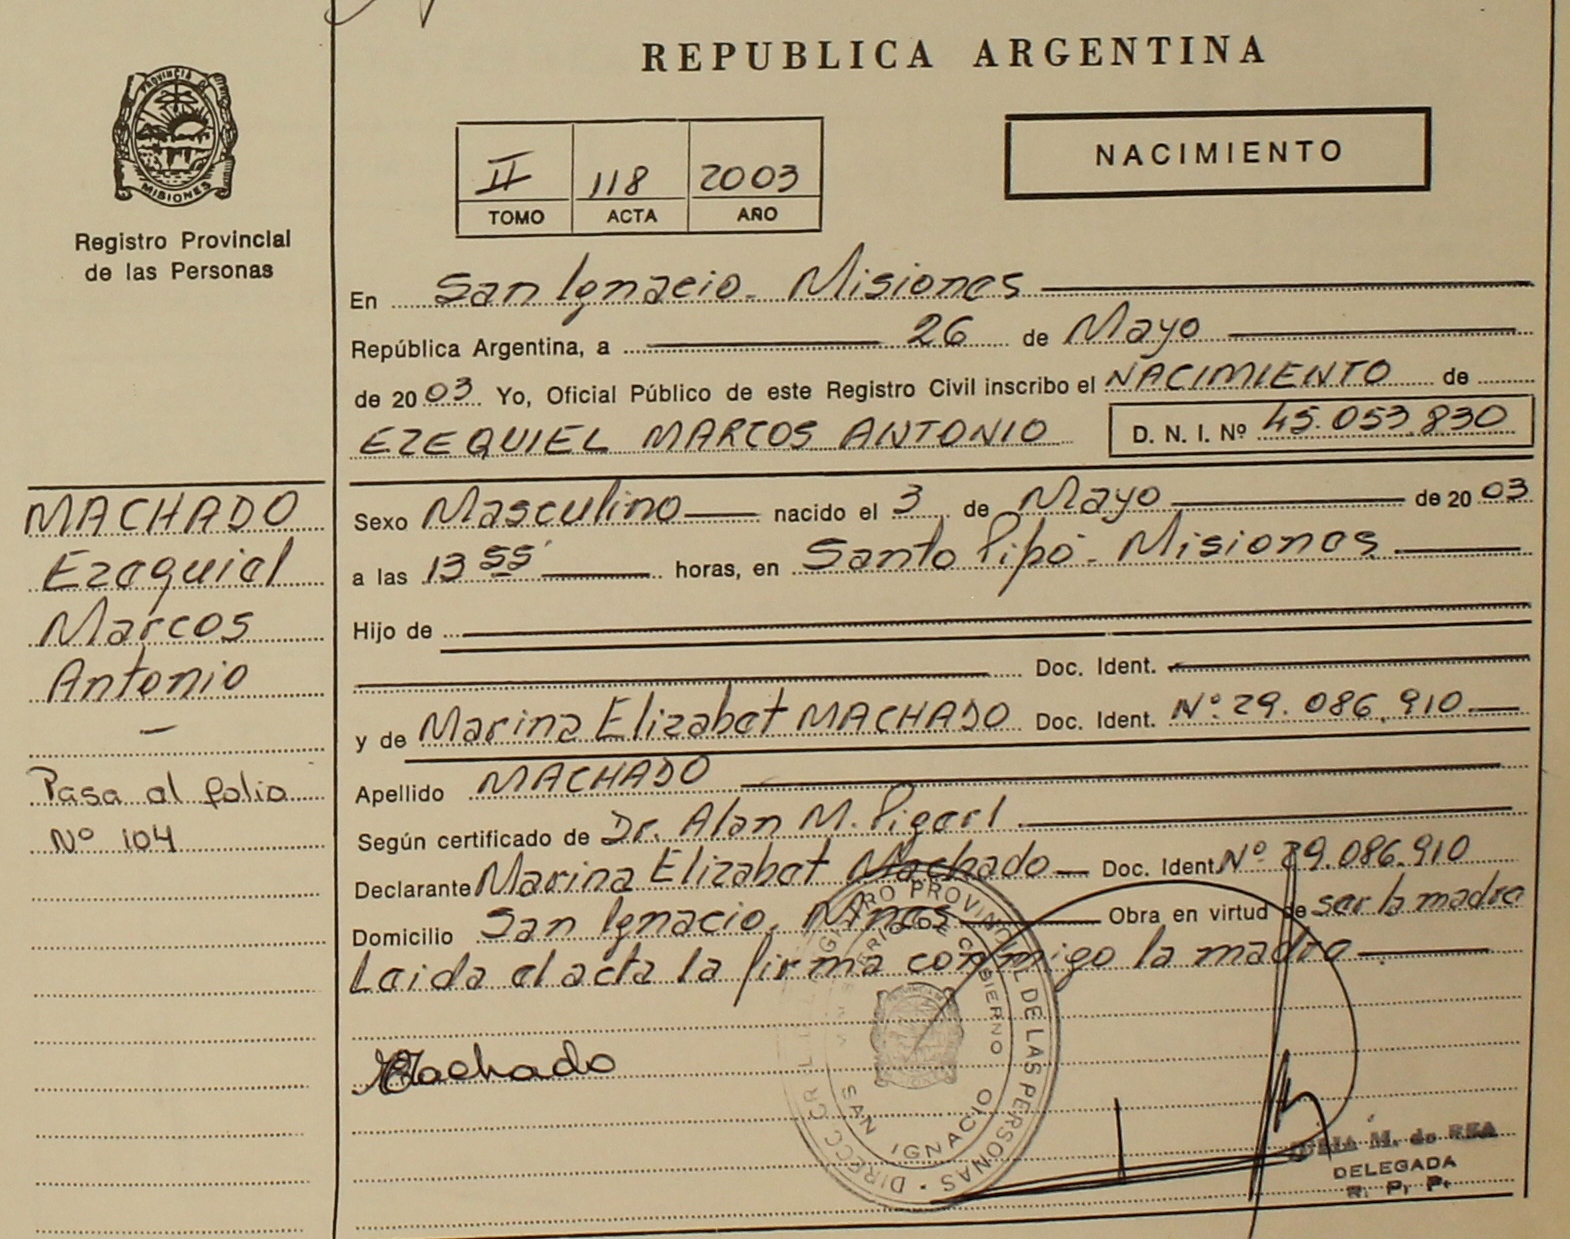 REPUBLICA ARGENTINA
PROVINCIA DE
MISIONES
Registro Provincial
de las Personas
II 118 2003
TOMO ACTA AÑO
NACIMIENTO
En San Ignacio - Misiones
República Argentina, a 26 de Mayo
de 2003 Yo, Oficial Público de este Registro Civil inscribo el NACIMIENTO de
EZEQUIEL MARCOS ANTONIO D. N. I. Nº 45.053.830
MACHADO
Ezequiel
Marcos
Antonio
Pasa al folio
Nº 104
Sexo Masculino nacido el 3 de Mayo de 2003
a las 13 55' horas, en Santo Pipó - Misiones
Hijo de
Doc. Ident.
y de Marina Elizabet MACHADO Doc. Ident. Nº 29.086.910
Apellido MACHADO
Según certificado de Dr. Alan M.
Declarante Marina Elizabet Machado Doc. Ident. Nº 29.086.910
Domicilio San Ignacio, Mnes Obra en virtud de ser la madre
Leida el acta la firma conmigo la madre
Machado
REGISTRO PROVINCIAL DE LAS PERSONAS
GOBIERNO
SAN IGNACIO
M. de REA
DELEGADA
R. P. P.